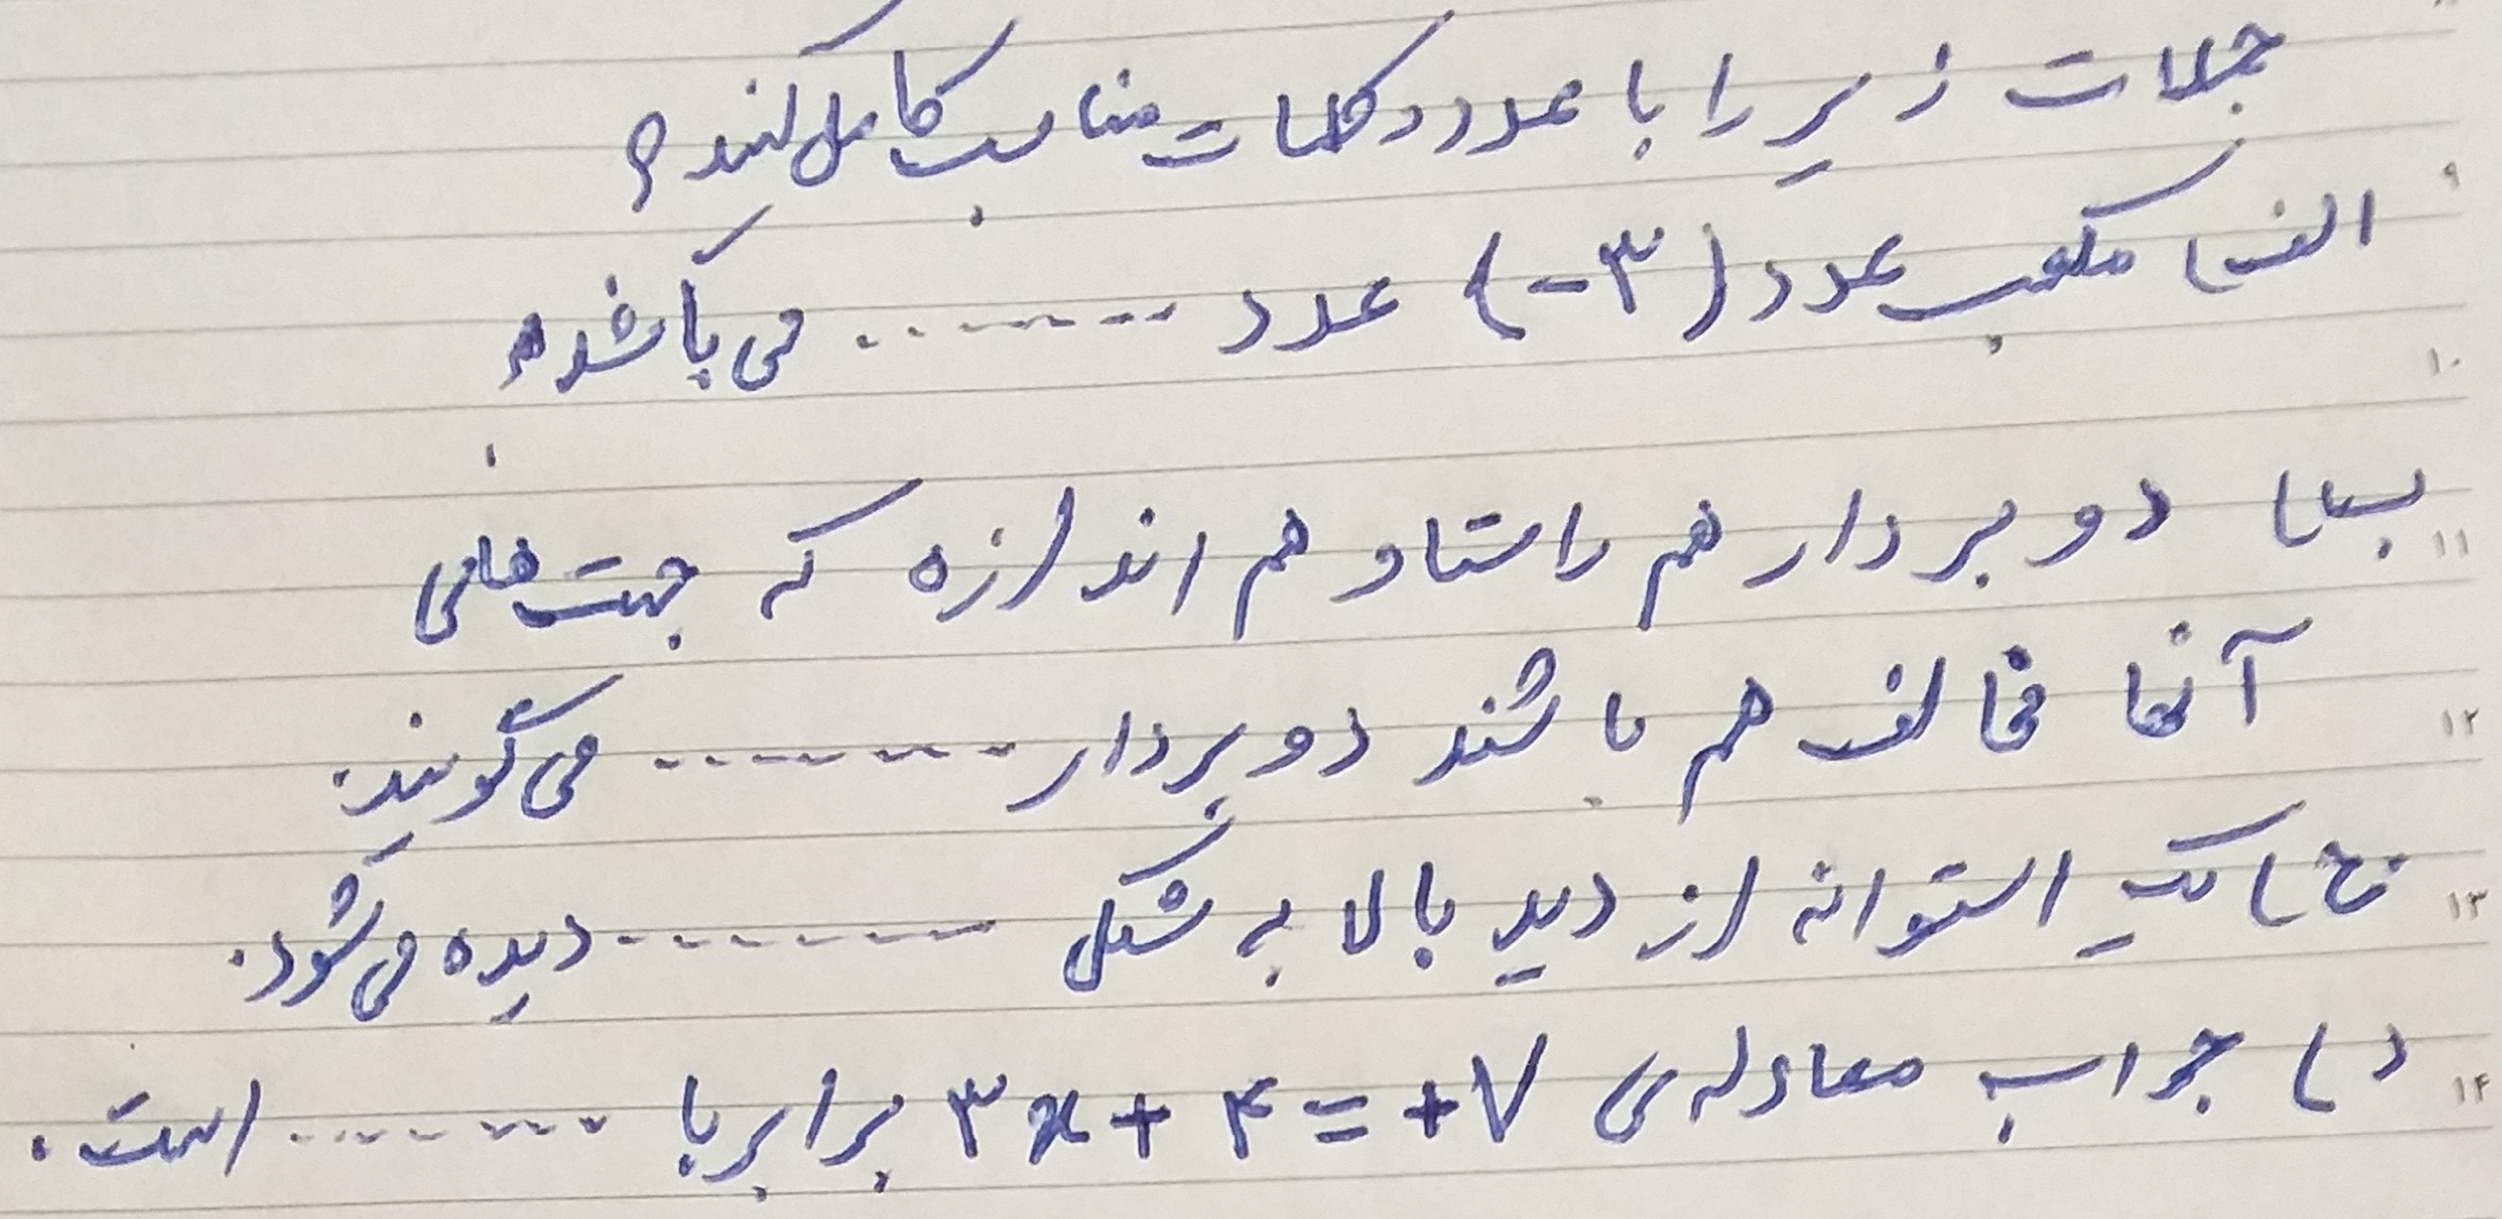 جملات زیر را با عدد و کلمات مناسب کامل کنید؟
الف) مکعب عدد (۳-) عدد ........ می باشد.
ب) دو بردار هم راستا و هم اندازه که جهت های
آنها مخالف هم باشند دو بردار ........ می گویند.
ج) یک استوانه از دید بالا به شکل ........ دیده می شود.
د) جواب معادله ی ۳x + ۴ = +۷ برابر با ........ است.
۹
۱۰
۱۱
۱۲
۱۳
۱۴